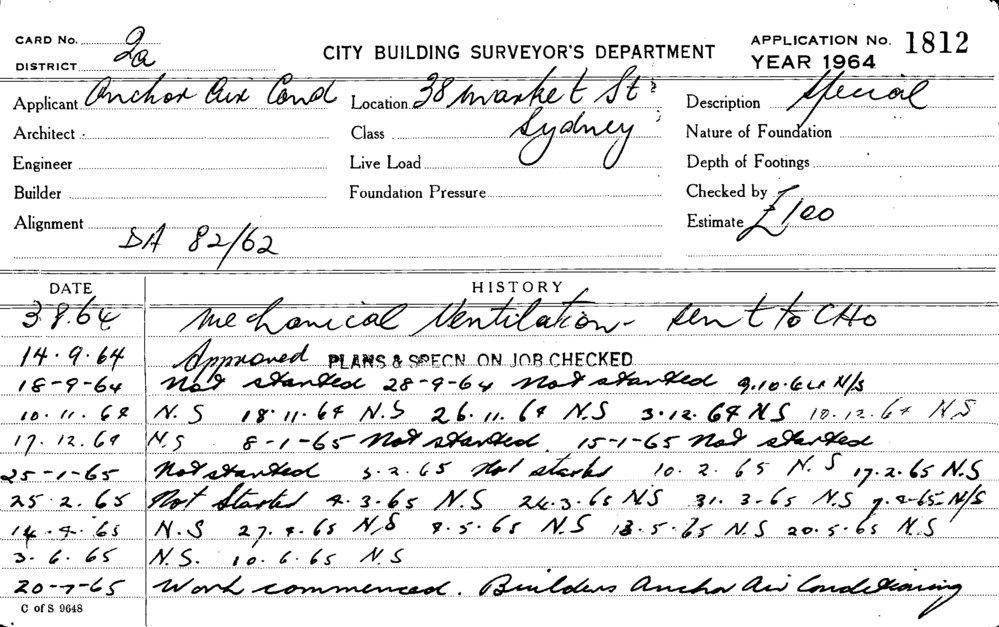 CARD No. 2a CITY BUILDING SURVEYOR'S DEPARTMENT APPLICATION No. 1812
DISTRICT YEAR 1964
Applicant Anchor Air Cond Location 38 Market St Description Special
Architect Class Sydney Nature of Foundation
Engineer Live Load Depth of Footings
Builder Foundation Pressure Checked by
Alignment Estimate £100
DA 82/62
DATE HISTORY
3 8.64 Mechanical Ventilation - sent to CHO
14.9.64 Approved PLANS & SPECN. ON JOB CHECKED
18-9-64 Not started 28-9-64 Not started 9.10.64 N/S
10.11.64 N.S 18.11.64 N.S 26.11.64 N.S 3.12.64 N S 10.12.64 N S
17.12.64 N.S 8-1-65 Not started 15-1-65 Not started
25-1-65 Not started 3.2.65 Not started 10.2.65 N.S 17.2.65 N.S
25.2.65 Not Started 4.3.65 N.S 24.3.65 N.S 31.3.65 N.S 7.4.65 N/S
14.4.65 N.S 27.4.65 N/S 4.5.65 N.S 13.5.65 N.S 20.5.65 N.S
3.6.65 N.S. 10.6.65 N.S
20-7-65 Work commenced. Builders Anchor Air Conditioning
C of S 9648